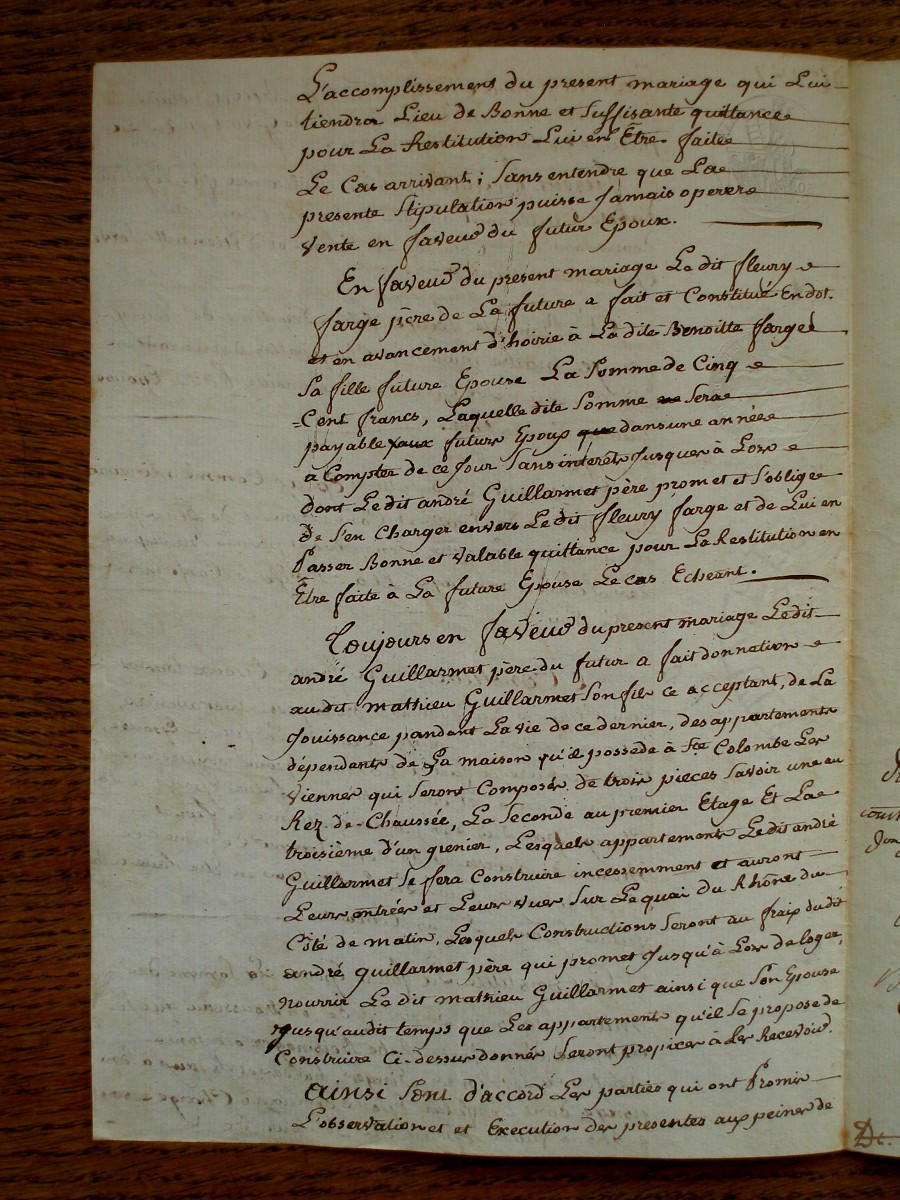 L'accomplissement du present mariage qui Lui
tiendra Lieu de Bonne et suffisante quittance
pour La Restitution Lui en Être faite
Le Cas arrivant ; sans entendre que La
presente stipulation puisse Jamais operer
vente en faveur du futur Epoux.
En faveur du present mariage Le dit fleury
farge père de La future a fait et Constitué En dot.
et en avancement d'hoirie à La dite Benoitte farge
Sa fille future Epouse La Somme de Cinq
=Cent francs, Laquelle dite Somme Sera
payable aux futurs Epoux dans une année
a Compter de ce Jour Sans interets Jusques à Lors
dont Le dit andré Guillarmet père promet et s'oblige
De S'en Charger envers Le dit fleury farge et de Lui en
Passer Bonne et valable quittance pour La Restitution en
Être faite à La future Epouse Le cas Echeant.
Toujours en faveur du present mariage Le dit
andré Guillarmet père du futur a fait donnation
au dit mathieu Guillarmet Son fils ce acceptant, de La
Jouissance pandant La vie de ce dernier, des appartements
dépendants de La maison qu'il possede à Ste Colombe Les
Vienne qui seront Composés de trois pieces Savoir une au
Rez-de-Chaussée, La Seconde au premier Etage Et La
troisième d'un grenier, Lesquels appartements Le dit andré
Guillarmet Se fera Construire incessemment et auront
Leurs entrées et Leurs vues Sur Le quai du Rhône du
Côté de matin, Lesquels Constructions Seront au fraix du dit
andré guillarmet père qui promet Jusqu'à Lors de loger,
nourrir La dit mathieu Guillarmet ainsi que Son Epouse
Jusqu'audit temps que Les appartements qu'il Se propose de
Construire Ci-dessus donnés Seront propices à Les Recevoir.
ainsi Sont d'accord Les parties qui ont Promis
L'observation et et Execution des presentes aux peines de